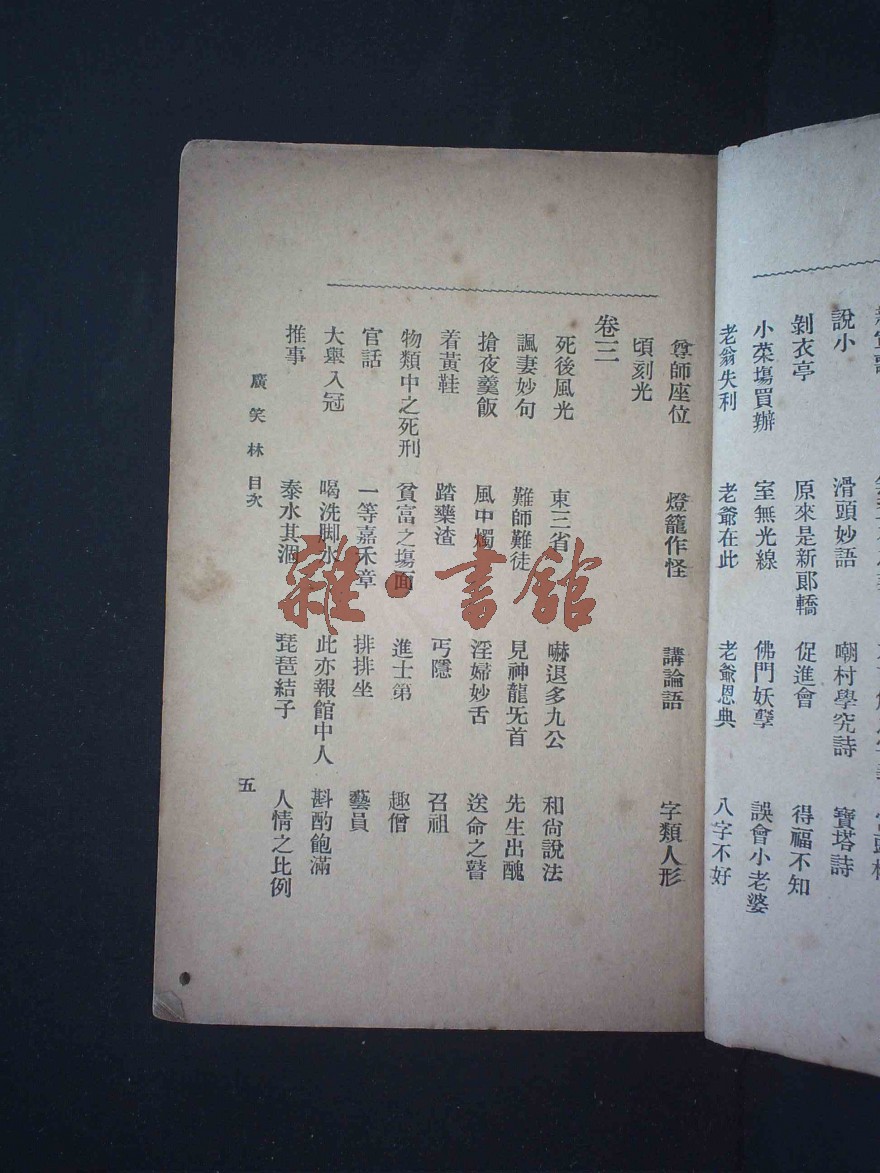 說小 滑頭妙語 嘲村學究詩 寶塔詩
剝衣亭 原來是新郞轎 促進會 得福不知
小菜塲買辦 室無光線 佛門妖孽 誤會小老婆
老翁失利 老爺在此 老爺恩典 八字不好
尊師座位 燈籠作怪 講論語 字類人形
頃刻光
卷三
死後風光 東三省 嚇退多九公 和尙說法
諷妻妙句 難師難徒 見神龍旡首 先生出醜
搶夜羹飯 風中燭 淫婦妙舌 送命之聲
着黃鞋 踏藥渣 丐隱 召祖
物類中之死刑 貧富之塲面 進士第 趣僧
官話 一等嘉禾章 排排坐 藝員
大舉入冠 喝洗脚水 此亦報館中人 斟酌飽滿
推事 泰水其涸 琵琶結子 人情之比例
廣笑林 目次 五
雜·書館